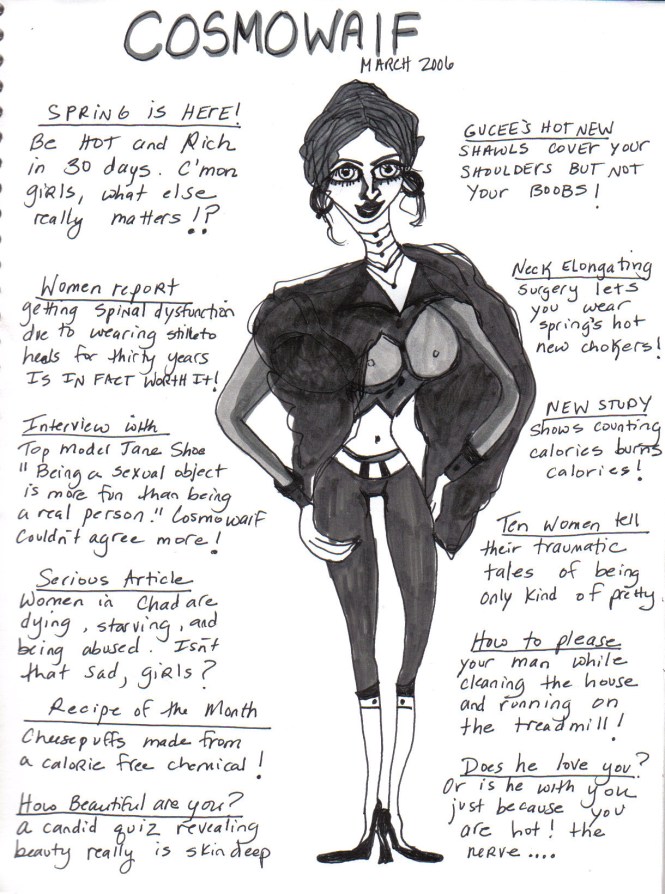 COSMOWAIF
MARCH 2006
SPRING is HERE!
Be HOT and Rich
in 30 days. C'mon
girls, what else
really matters!?
Women report
getting spinal dysfunction
due to wearing stilleto
heals for thirty years
IS IN FACT WORTH IT!
Interview with
Top Model Jane Shoe
"Being a sexual object
is more fun than being
a real person." Cosmowaif
couldn't agree more!
Serious Article
Women in Chad are
dying, starving, and
being abused. Isn't
that sad, girls?
Recipe of the Month
Cheesepuffs made from
a calorie free chemical!
How Beautiful are you?
a candid quiz revealing
beauty really is skin deep
GUCEE'S HOT NEW
SHAWLS COVER YOUR
SHOULDERS BUT NOT
YOUR BOOBS!
Neck Elongating
surgery lets
you wear
spring's hot
new chokers!
NEW STUDY
shows counting
calories burns
calories!
Ten Women tell
their traumatic
tales of being
only kind of pretty.
How to please
your man while
cleaning the house
and running on
the treadmill!
Does he love you?
Or is he with you
just because you
are hot! the
nerve....